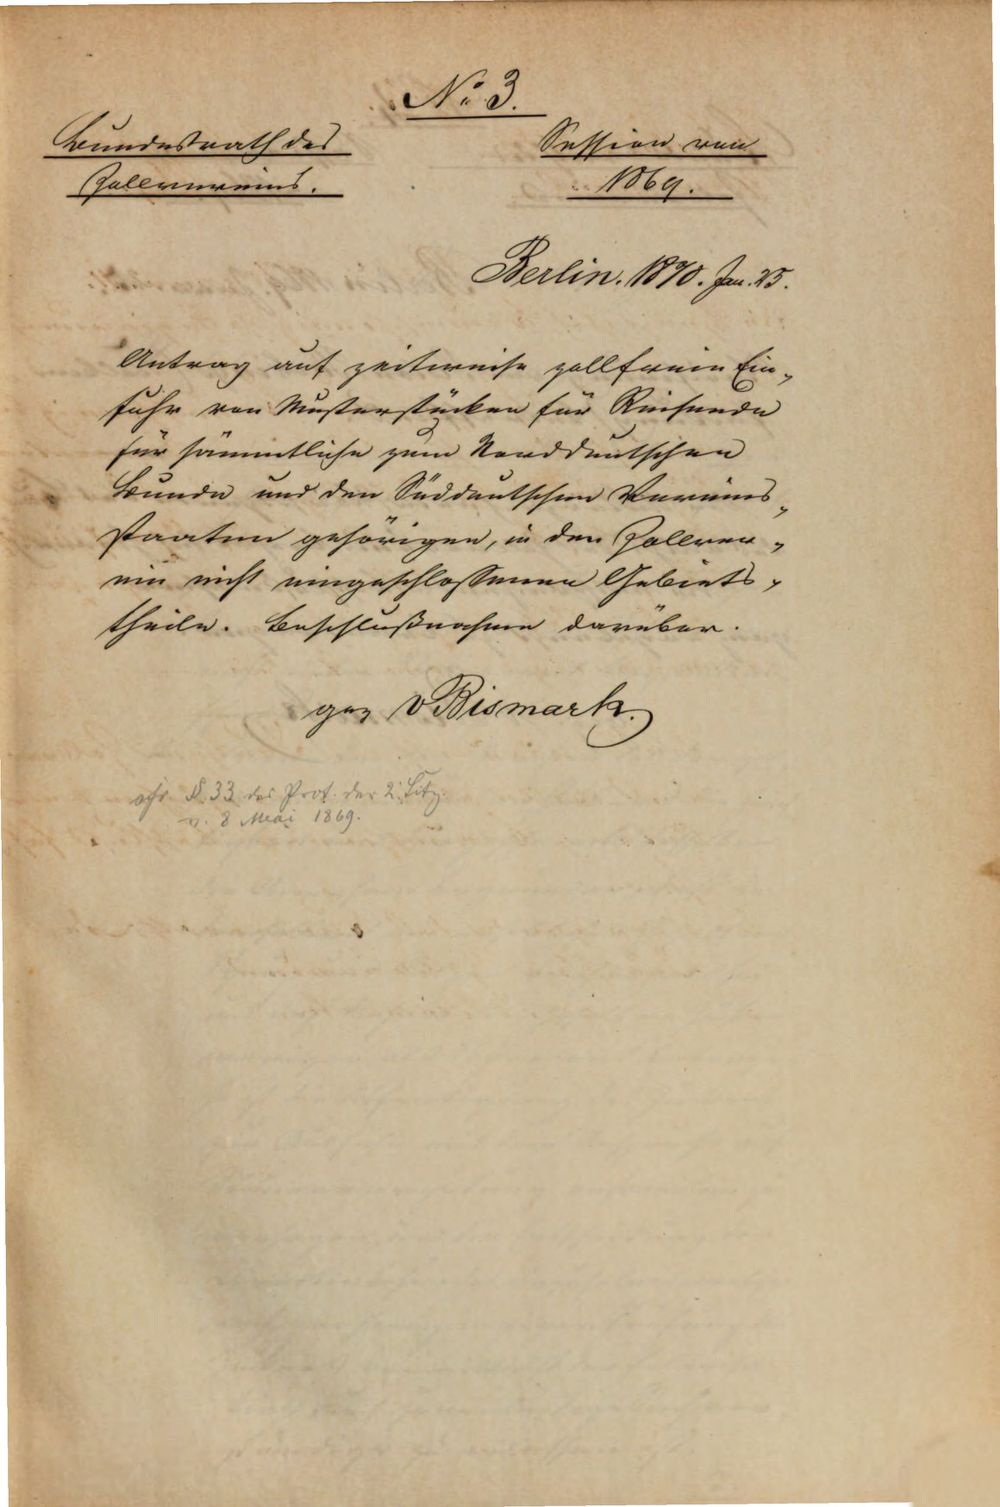 No 3.
Bundesrath des
Zollvereins.
Session von
1869.
Berlin. 1870. Jan. 25.
Antrag auf zeitweise zollfreie Ein-
fuhr von Musterstücken für Reisende
für sämmtliche zum Norddeutschen
Bunde und den Süddeutschen Vereins-
staaten gehörigen, in den Zollver-
ein nicht eingeschlossenen Gebiets-
theile. Beschlußnahme darüber.
gez v Bismark.
cfr. §. 33 des Prot. der 2. Sitzg.
v. 8 Mai 1869.